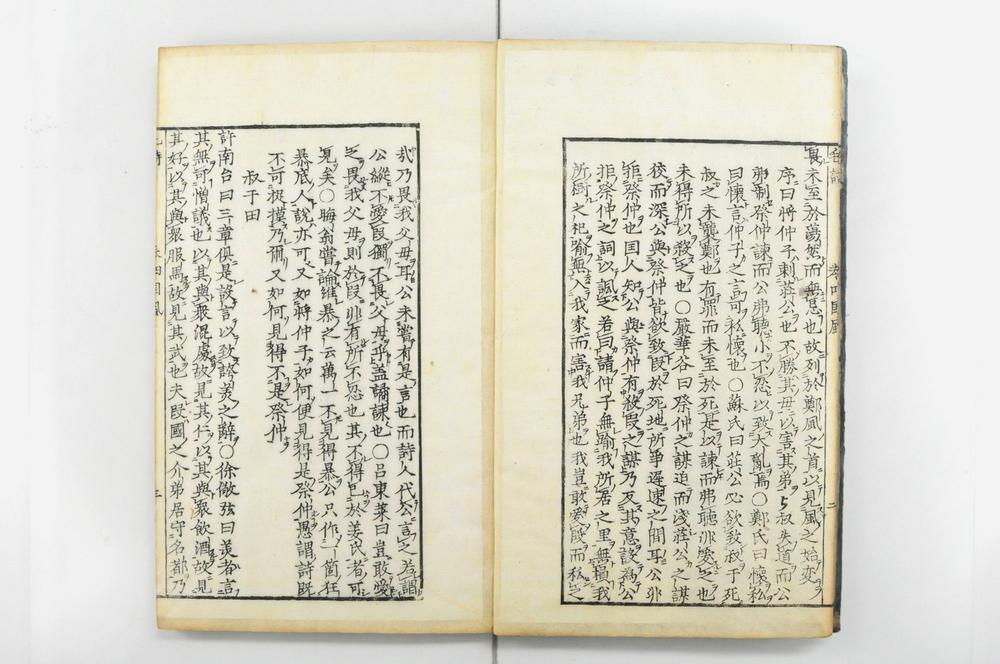 毛詩
卷四囯風
二
良未至於蕩然而無忌也故列於鄭風之首以見風之始変
序曰將仲子刺莊公也不勝其母以害其弟弟叔失道而公
弗制祭仲諫而公弗聽小不忍以致大亂焉〇鄭氏曰懷私
曰懷言仲子之言可私懷也〇蘇氏曰莊公必欲致叔于死
叔之未襲鄭也有罪而未至於死是以諫而弗聽非愛之也
未得所以殺之也〇嚴華谷曰祭仲之謀迫而淺莊公之謀
狡而深公與祭仲皆欲致段於死地所爭遲速之間耳公非
拒祭仲也囯人知公與祭仲有殺段之謀乃反其意設為公
拒祭仲之詞以諷之若曰請仲子無踰我所居之里無損我
所樹之杞喻無入我家而害我兄弟也我豈敢愛段而私之
哉乃畏我父母耳公未嘗有是言也而詩人代公言之若謂
公縱不愛段獨不畏父母乎盖譎諫也〇呂東萊曰豈敢愛
之畏我父母則於段非有所不忍也其不得已於姜氏者可
見矣〇晦翁嘗論維暴之云萬一不見得暴公只作一箇狂
暴底人說亦可又如將仲子如何便見得是祭仲愚謂詩既
不可捉摸乃爾又如何見得不是祭仲
叔于田
許南台曰三章俱是設言以致誇美之辭〇徐儆弦曰美者言
其無可憎議也以其與衆混處故見其仁以其與衆飲酒故見
其好以其與衆服馬故見其武也夫段國之介弟居守名都乃
三